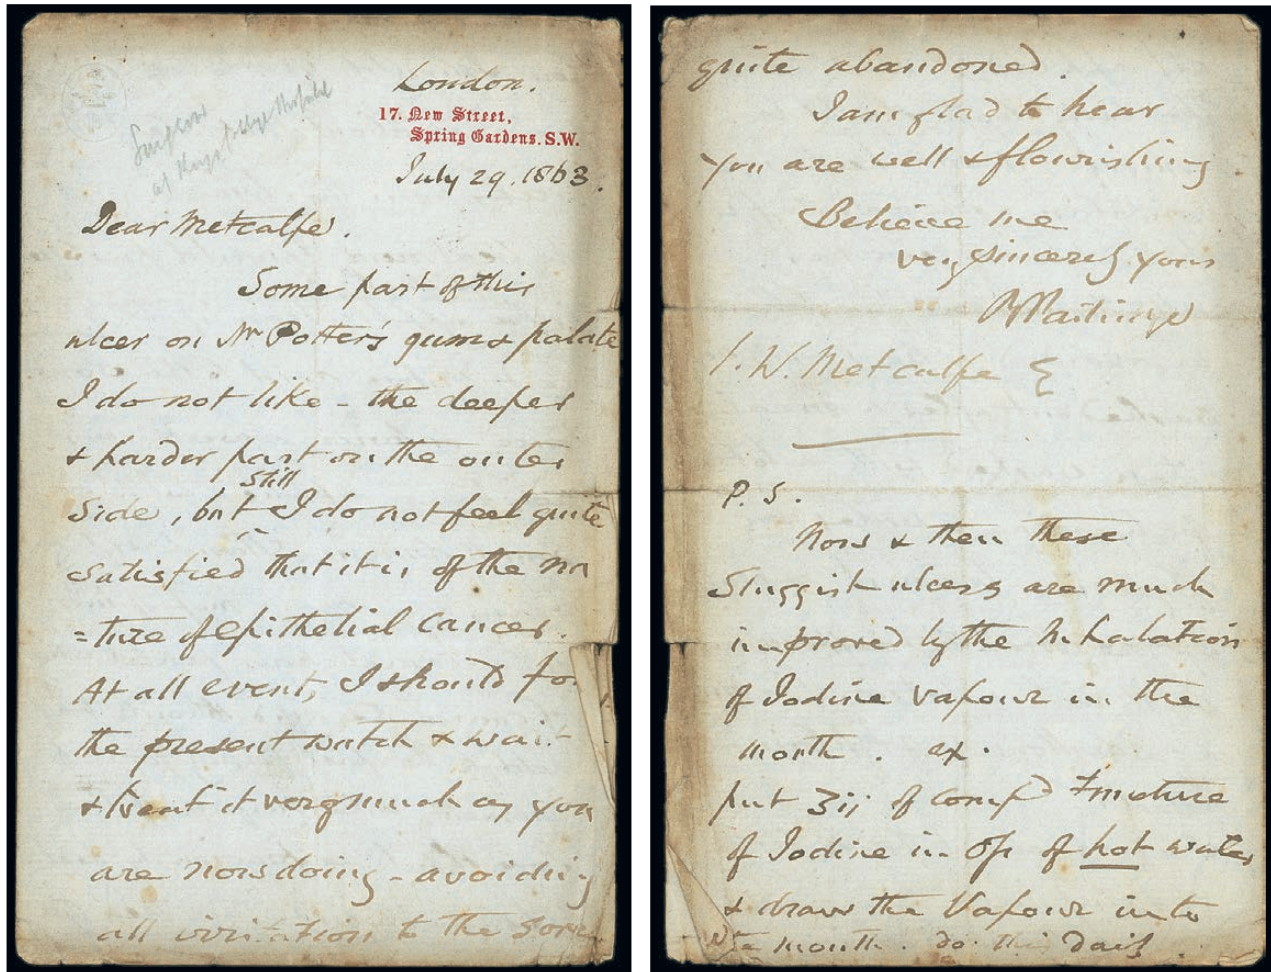 London.
17. New Street,
Spring Gardens. S.W.
July 29. 1863.
Dear Metcalfe.
Some part of this
ulcer on Mr Potter's gum & palate
I do not like - the deeper
& harder part on the outer
side, but still I do not feel quite
satisfied that it is of the na
=ture of epithelial cancer.
At all events, I should for
the present watch & wait
& treat it very much as you
are now doing - avoiding
all irritation to the sore
quite abandoned.
I am glad to hear
you are well & flourishing
Believe me
very sincerely yours
W. Metcalfe
P.S.
Now & then these
sluggish ulcers are much
improved by the inhalation
of Iodine vapour in the
mouth.
put ʒij of compd Tincture
of Iodine in Oj of hot water
& draw the Vapour into
the mouth. do this daily.